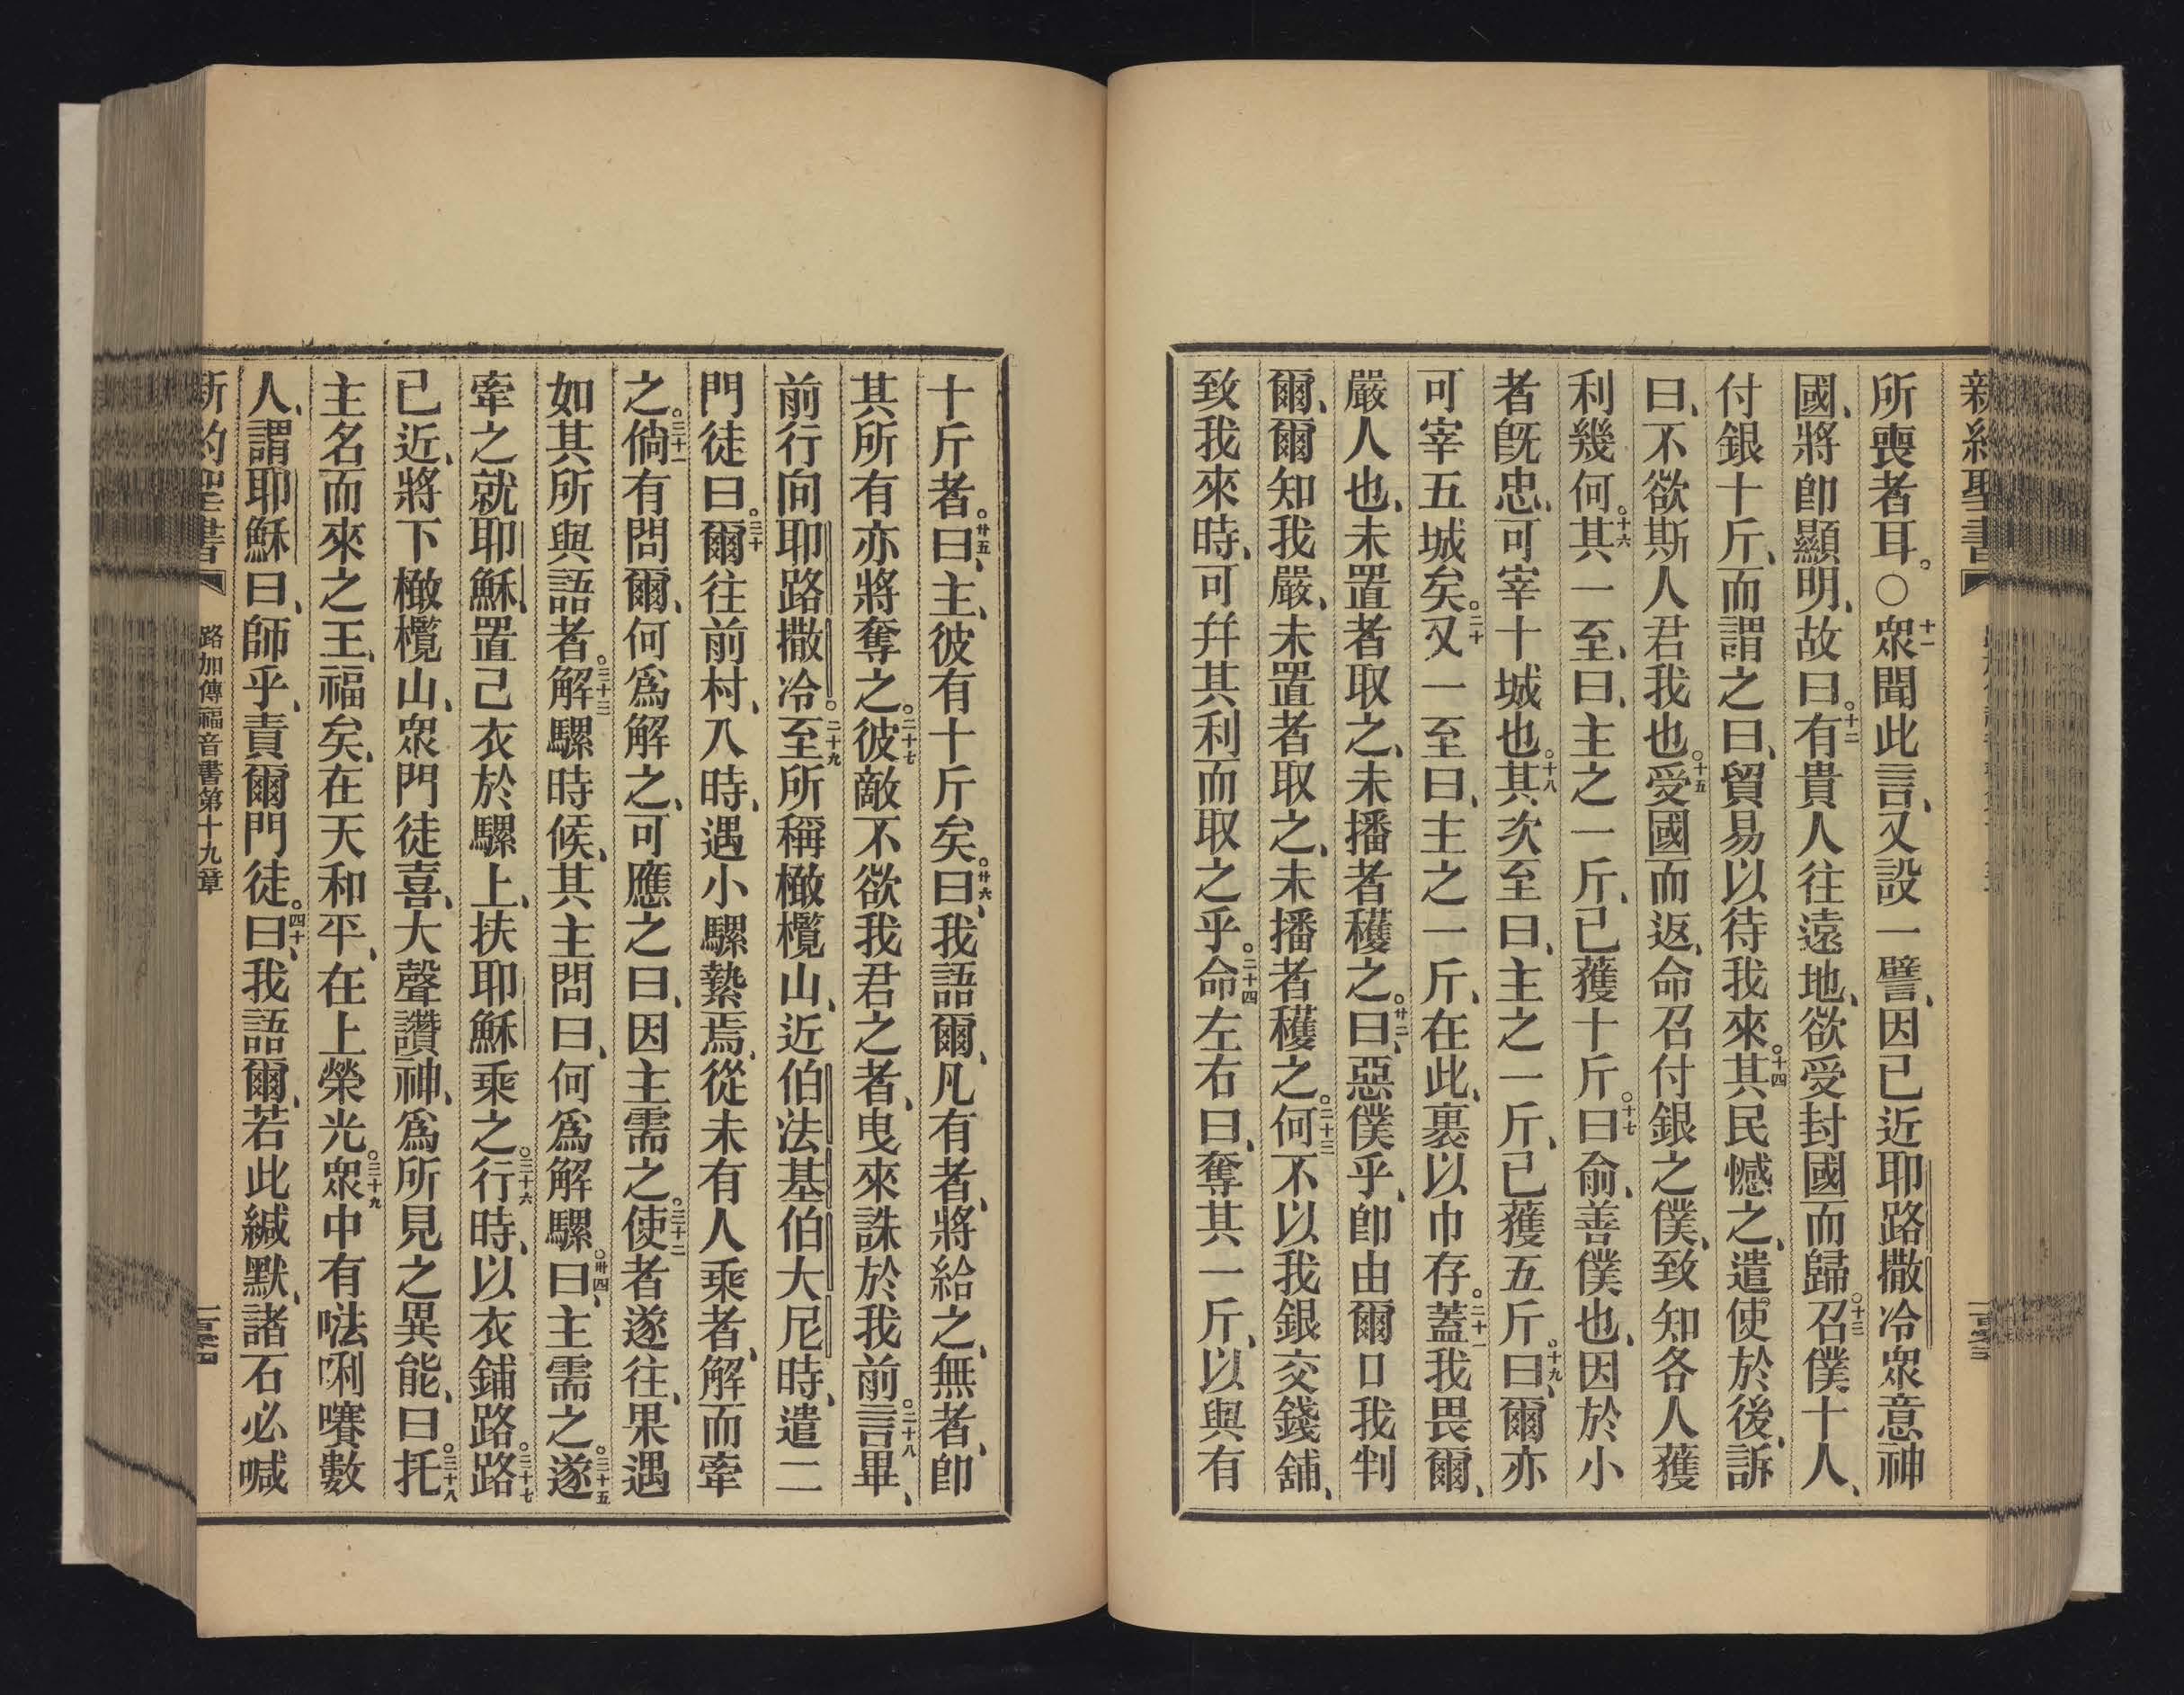 新約聖書
所喪者耳。〇十一衆聞此言、又設一譬、因已近耶路撒冷衆意神
國、將卽顯明、故曰。十二有貴人往遠地、欲受封國而歸。十三召僕十人、
付銀十斤、而謂之曰、貿易以待我來。十四其民憾之、遣使於後、訴
曰、不欲斯人君我也。十五受國而返、命召付銀之僕、致知各人獲
利幾何。十六其一至、曰、主之一斤、已獲十斤。十七曰俞、善僕也、因於小
者旣忠、可宰十城也。十八其次至曰、主之一斤、已獲五斤。十九曰、爾亦
可宰五城矣。二十又一至曰、主之一斤、在此、裹以巾存。二十一蓋我畏爾、
嚴人也、未置者取之、未播者穫之。廿二曰、惡僕乎、卽由爾口我判
爾、爾知我嚴、未置者取之、未播者穫之。二十三何不以我銀交錢舖、
致我來時、可幷其利而取之乎。二十四命左右曰、奪其一斤、以與有
十斤者。廿五曰、主、彼有十斤矣。廿六曰、我語爾、凡有者、將給之、無者、卽
其所有亦將奪之。二十七彼敵不欲我君之者、曳來誅於我前。二十八言畢、
前行向耶路撒冷。二十九至所稱橄欖山、近伯法基伯大尼時、遣二
門徒曰。三十爾往前村、入時、遇小騾縶焉、從未有人乘者、解而牽
之。三十一倘有問爾、何爲解之、可應之曰、因主需之。三十二使者遂往、果遇
如其所與語者。三十三解騾時候、其主問曰、何爲解騾。卅四曰、主需之。三十五遂
牽之就耶穌、置己衣於騾上、扶耶穌乘之。三十六行時、以衣鋪路。三十七路
已近、將下橄欖山、衆門徒喜、大聲讚神、爲所見之異能、曰。三十八托
主名而來之王、福矣、在天和平、在上榮光。三十九衆中有𠵽唎㘔數
人、謂耶穌曰、師乎、責爾門徒。四十曰、我語爾、若此緘默、諸石必喊
新約聖書 路加傳福音書第十九章 一百零四